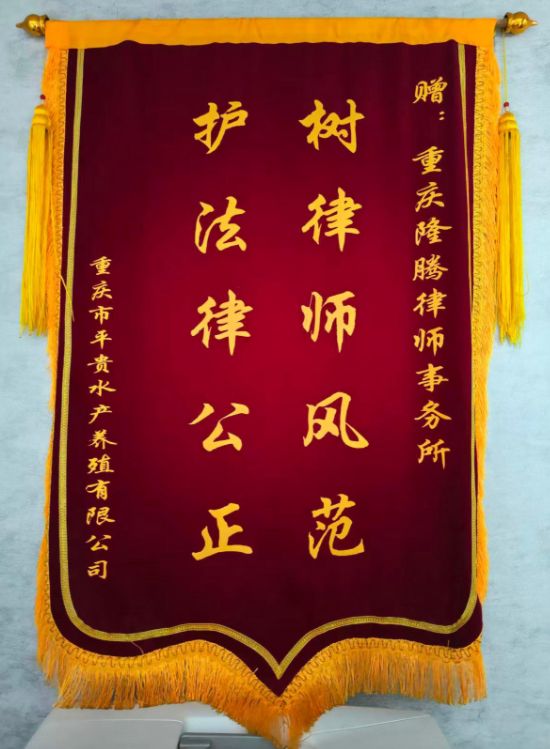 赠：重庆隆腾律师事务所
树律师风范
护法律公正
重庆市平贵水产养殖有限公司